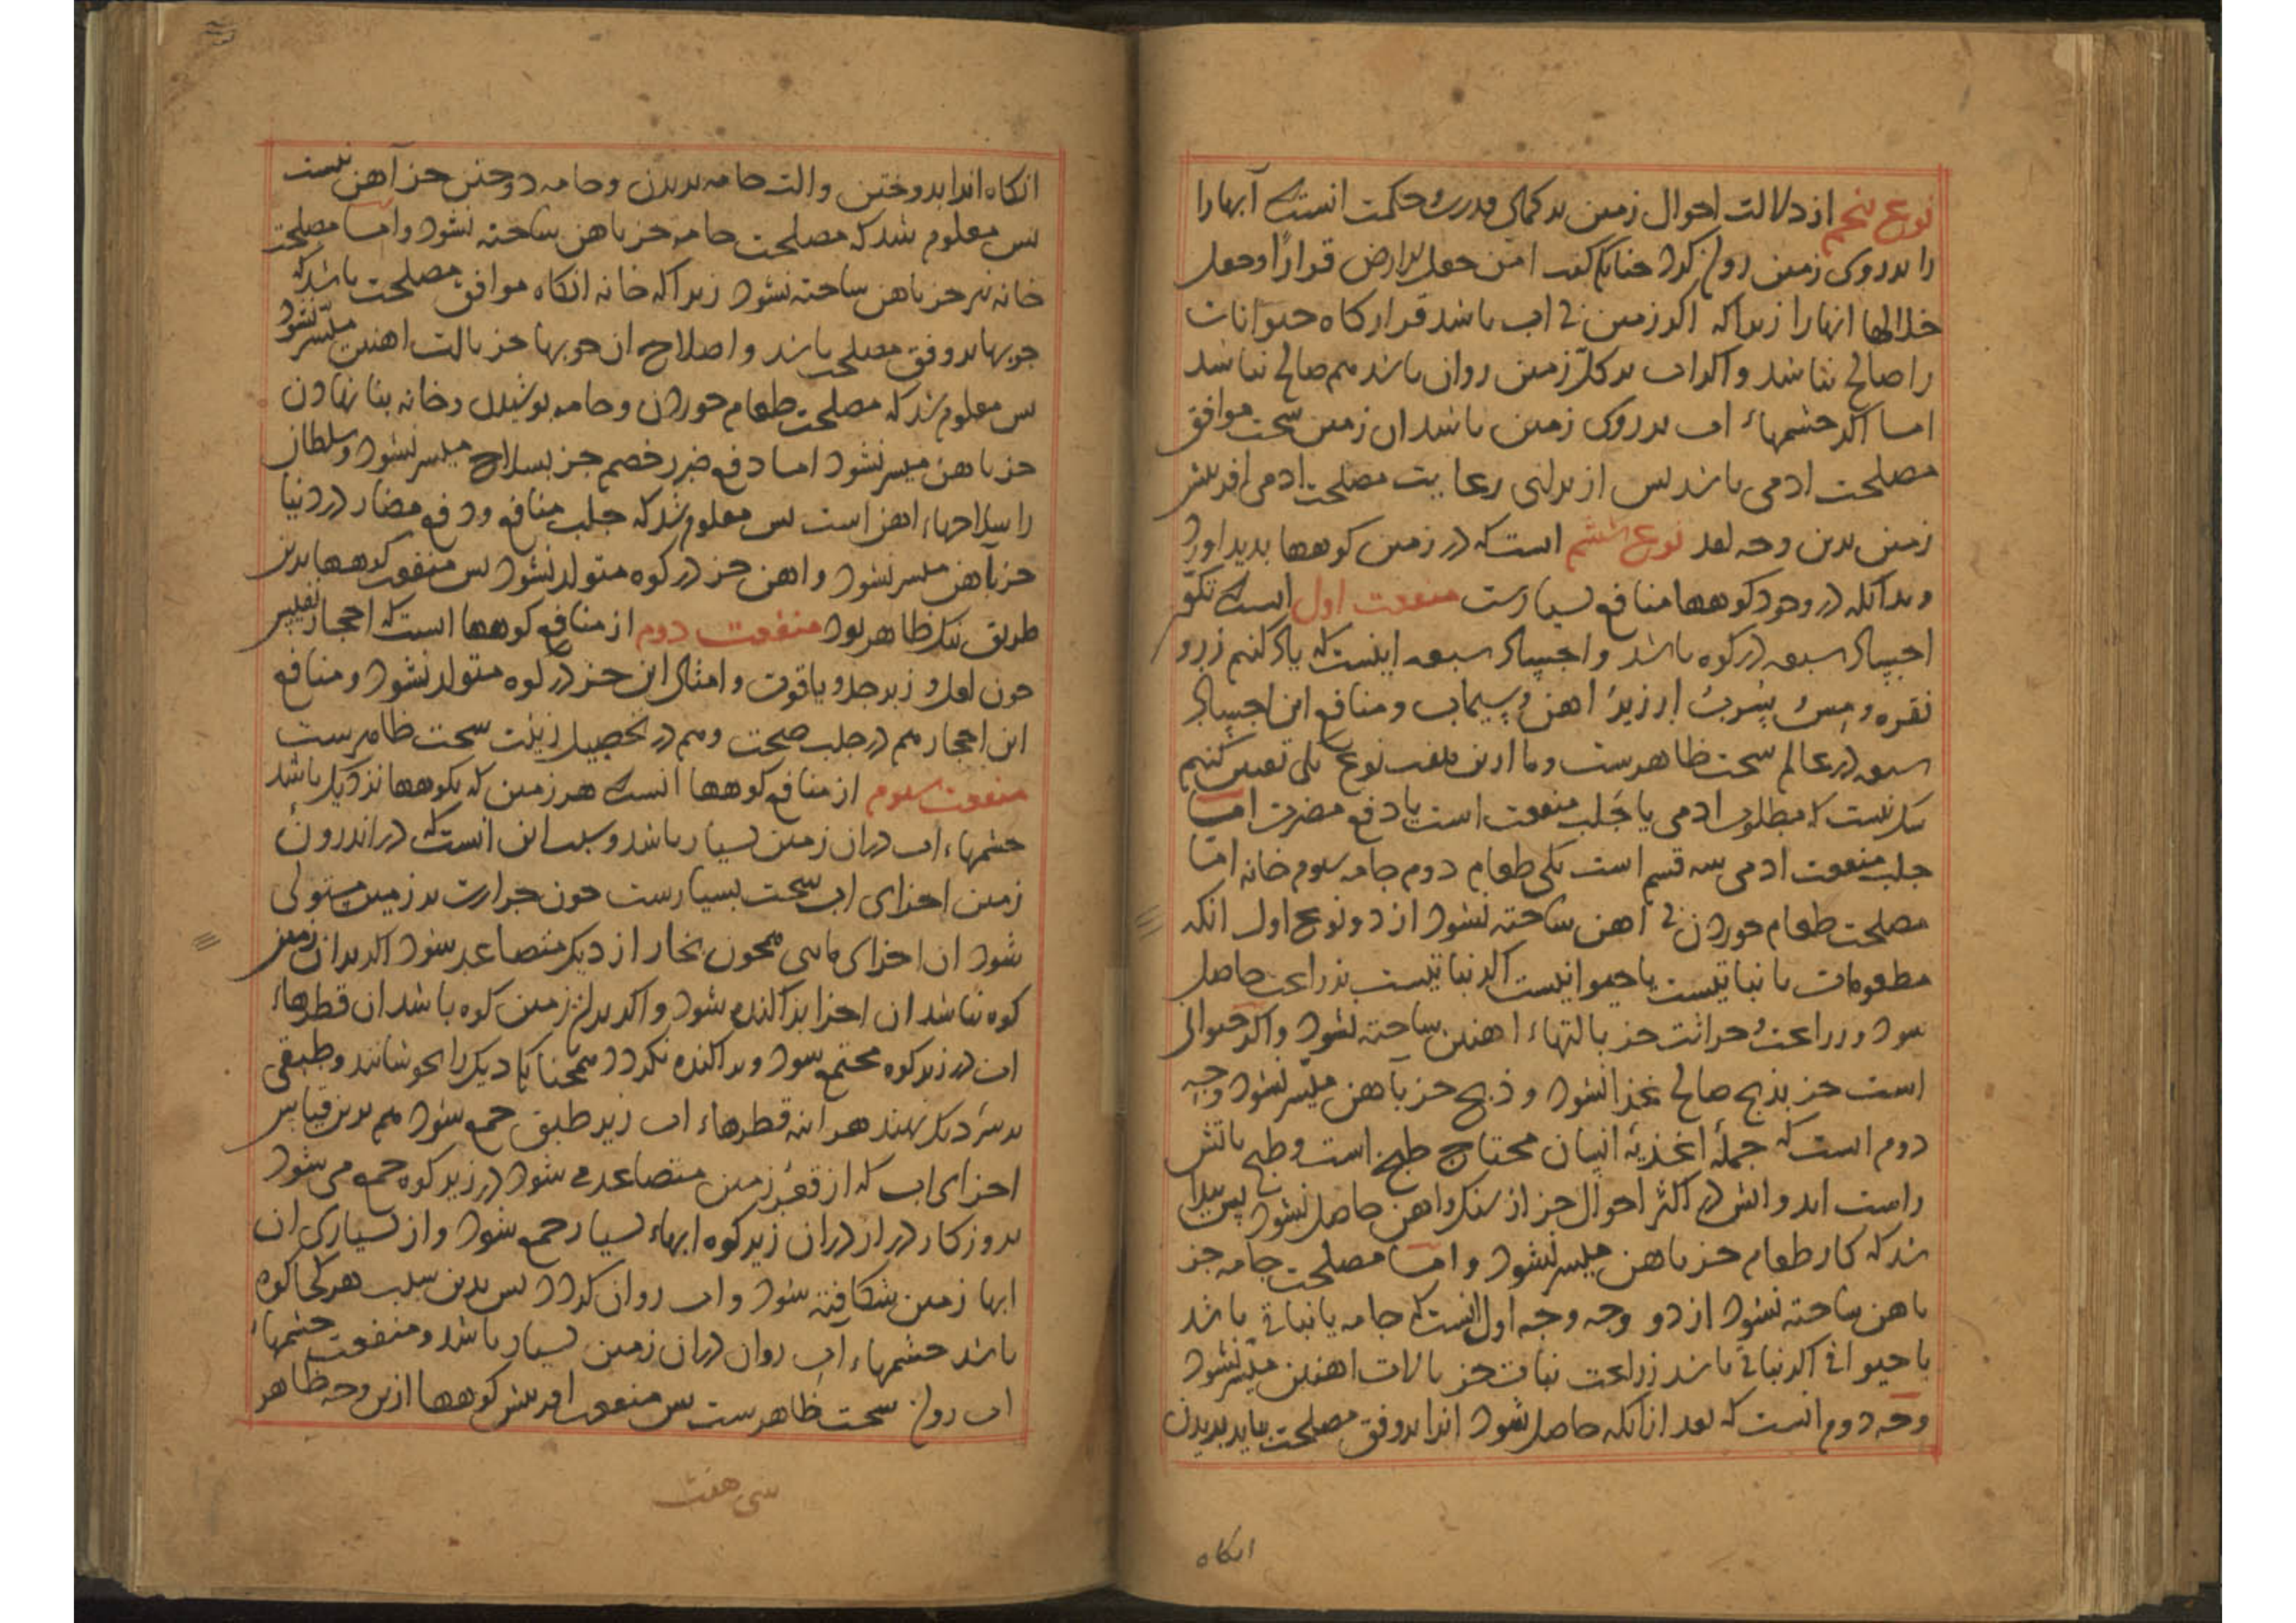 نوع پنجم از دلالت احوال زمین بر کمال قدرت و حکمت انست که آبها را
را بر روی زمین روان کرد چنانکه گفت امّن جعل الارض قرارًا وجعل
خلالها انهارا زیرا که اکر زمین بی اب باشد قرارکاه حیوانات
را صالح نباشد و اکر اب بر کلّ زمین روان باشد هم صالح نباشد
اما اکر چشمهاء اب بر روی زمین باشد ان زمین سخت موافق
مصلحت ادمی باشد پس از برای رعایت مصلحت ادمی افرینش
زمین بدین وجه بود نوع ششم است که در زمین کوهها بدید اورد
و بدانکه در وجود کوهها منافع بسیارست منفعت اول انست که تکوّن
اجساد سبعه در کوه باشد و اجساد سبعه اینست که یاد کنیم زر و
نقره و مس و سُرب و ارزیز و اهن و سیماب و منافع این اجساد
سبعه در عالم سخت ظاهرست و ما ازین هفت نوع یکی تعیین کنیم
شک نیست که مطلوب ادمی یا جلب منفعت است یا دفع مضرت اما
جلب منفعت ادمی سه قسم است یکی طعام دوم جامه سوم خانه اما
مصلحت طعام خوردن بی اهن ساخته نشود از دو نوع اول انکه
مطعومات یا نباتیست یا حیوانیست اکر نباتیست بزراعت حاصل
شود و زراعت و حراثت جز بالتهاء اهنین ساخته نشود و اکر حیوانی
است جز بذبح صالح غذا نشود و ذبح جز باهن میسّر نشود وجه
دوم است که جملهٔ اغذیهٔ انسان محتاج طبخ است و طبخ باتش
راست اید و اتش در اکثر احوال جز از سنک و اهن حاصل نشود پس پیدا
شد که کار طعام جز باهن میسر نشود و اما مصلحت جامه جز
باهن ساخته نشود از دو وجه وجه اول انست که جامه یا نباتی باشد
یا حیوانی اکر نباتی باشد زراعت نبات جز بالات اهنین میسّر نشود
وجه دوم انست که بعد ازانکه حاصل شود انرا بر وفق مصلحت بباید بریدن
انکاه
انکاه انرا بدوختن والت جامه بریدن و جامه دوختن جز آهن نیست
پس معلوم شد که مصلحت جامه جز باهن ساخته نشود و اما مصلحت
خانه نیز جز باهن ساخته نشود زیرا که خانه انکاه موافق مصلحت باشد که
چوبها بر وفق مصلحت باشد و اصلاح ان چوبها جز بالت اهنین میسّر نشود
پس معلوم شد که مصلحت طعام خوردن و جامه پوشیدن و خانه بنا نهادن
جز باهن میسر نشود اما دفع ضرر خصم جز بسلاح میسر نشود و سلطان
را سلاحهاء اهن است پس معلوم شد که جلب منافع و دفع مضار در دنیا
جز بآهن میسر نشود و اهن جز در کوه متولد نشود پس منفعت کوهها بدین
طریق نیک ظاهر بود منفعت دوم از منافع کوهها انست که احجار نفیس
چون لعل و زبرجد و یاقوت و امثال این جز در کوه متولد نشود و منافع
این احجار هم در جلب صحت و هم در تحصیل زینت سخت ظاهرست
منفعت سوم از منافع کوهها انست که هر زمین که بکوهها نزدیک باشد
چشمهاء اب دران زمین بسیار باشد و سبب این انست که در اندرون
زمین اجزای اب سخت بسیارست چون حرارت بر زمین مستولی
شود ان اجزای مایی همچون بخار از دیک متصاعد شود اکر بران زمین
کوه نباشد ان اجزا پراکنده شود و اکر بران زمین کوه باشد ان قطرهاء
اب در زیر کوه مجتمع شود و پراکنده نکردد همچنانک دیک را بجوشانند و طبقی
بر سر دیک نهند هر اینه قطرهاء اب زیر طبق جمع شود هم برین قیاس
اجزای اب که از قعر زمین متصاعد می شود در زیر کوه جمع می شود
بروزکار دراز دران زیر کوه ابهاء بسیار جمع شود و از بسیاری ان
ابها زمین شکافته شود و اب روان کردد پس بدین سبب هر کجا کوه
باشد چشمهاء اب روان دران زمین بسیار باشد و منفعت چشمهاء
اب روان سخت ظاهرست پس منفعت افرینش کوهها ازین وجه ظاهر
سی هفت